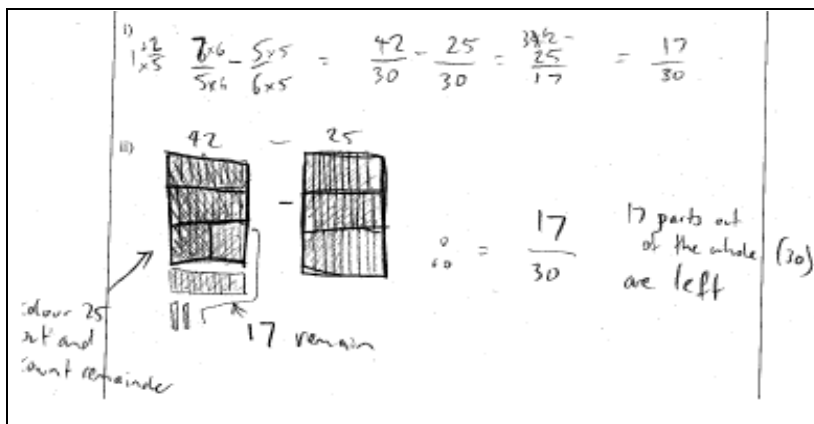 i)
1 +2/×5 7×6/5×6 - 5×5/6×5 = 42/30 - 25/30 = 42 - 25 17 = 17/30
ii)
42 - 25
- ∴ = 17/30
17 parts out
of the whole (30)
are left
colour 25
out and
count remainder
17 remain